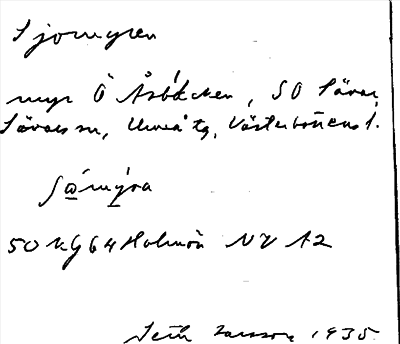 Sjömyren
myr Ö Åsbäcken, SO Sävar,
Sävars sn, Umeå tg, Västerbottens l.
50 KG 64 Holmön NV A2
Larsson 1935